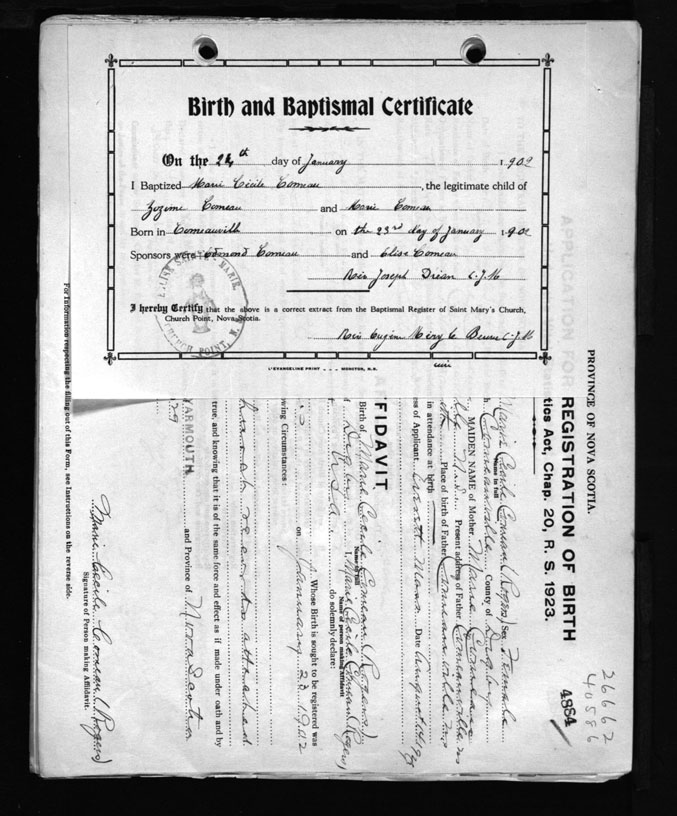 Birth and Baptismal Certificate
On the 24th day of January 1902
I Baptized Marie Cécile Comeau, the legitimate child of
Zozime Comeau and Marie Comeau
Born in Comeauville on the 23rd day of January 1902
Sponsors were Edmond Comeau and Elise Comeau
Rev Joseph Dréan C.J.M
I hereby Certify that the above is a correct extract from the Baptismal Register of Saint Mary's Church,
Church Point, Nova Scotia.
L'EVANGELINE PRINT - - - MONCTON, N.B.
PROVINCE OF NOVA SCOTIA.
REGISTRATION OF BIRTH
tics Act, Chap. 20, R. S. 1923.
26662
40586
4884
Marie Cecile Comeau (Rogers) Sex Female
Name in full
Comeauville County of Digby
MAIDEN NAME of Mother Marie Comeau
N.S. Present address of Father Comeauville NS
Place of birth of Father Comeauville N.S.
in attendance at birth
ess of Applicant Everett Mass Date August
FFIDAVIT
Birth of Marie Cecile Comeau (Rogers)
Name in full
Digby I, Marie Cecile Comeau (Rogers)
Name of person making affidavit
do solemnly declare:
Whose Birth is sought to be registered was
on January 23 1902
wing Circumstances:
record attached
true, and knowing that it is of the same force and effect as if made under oath and by
YARMOUTH and Province of Nova Scotia
29
Marie Cecile Comeau (Rogers)
Signature of Person making Affidavit.
For information respecting the filling out of this Form, see Instructions on the reverse side.